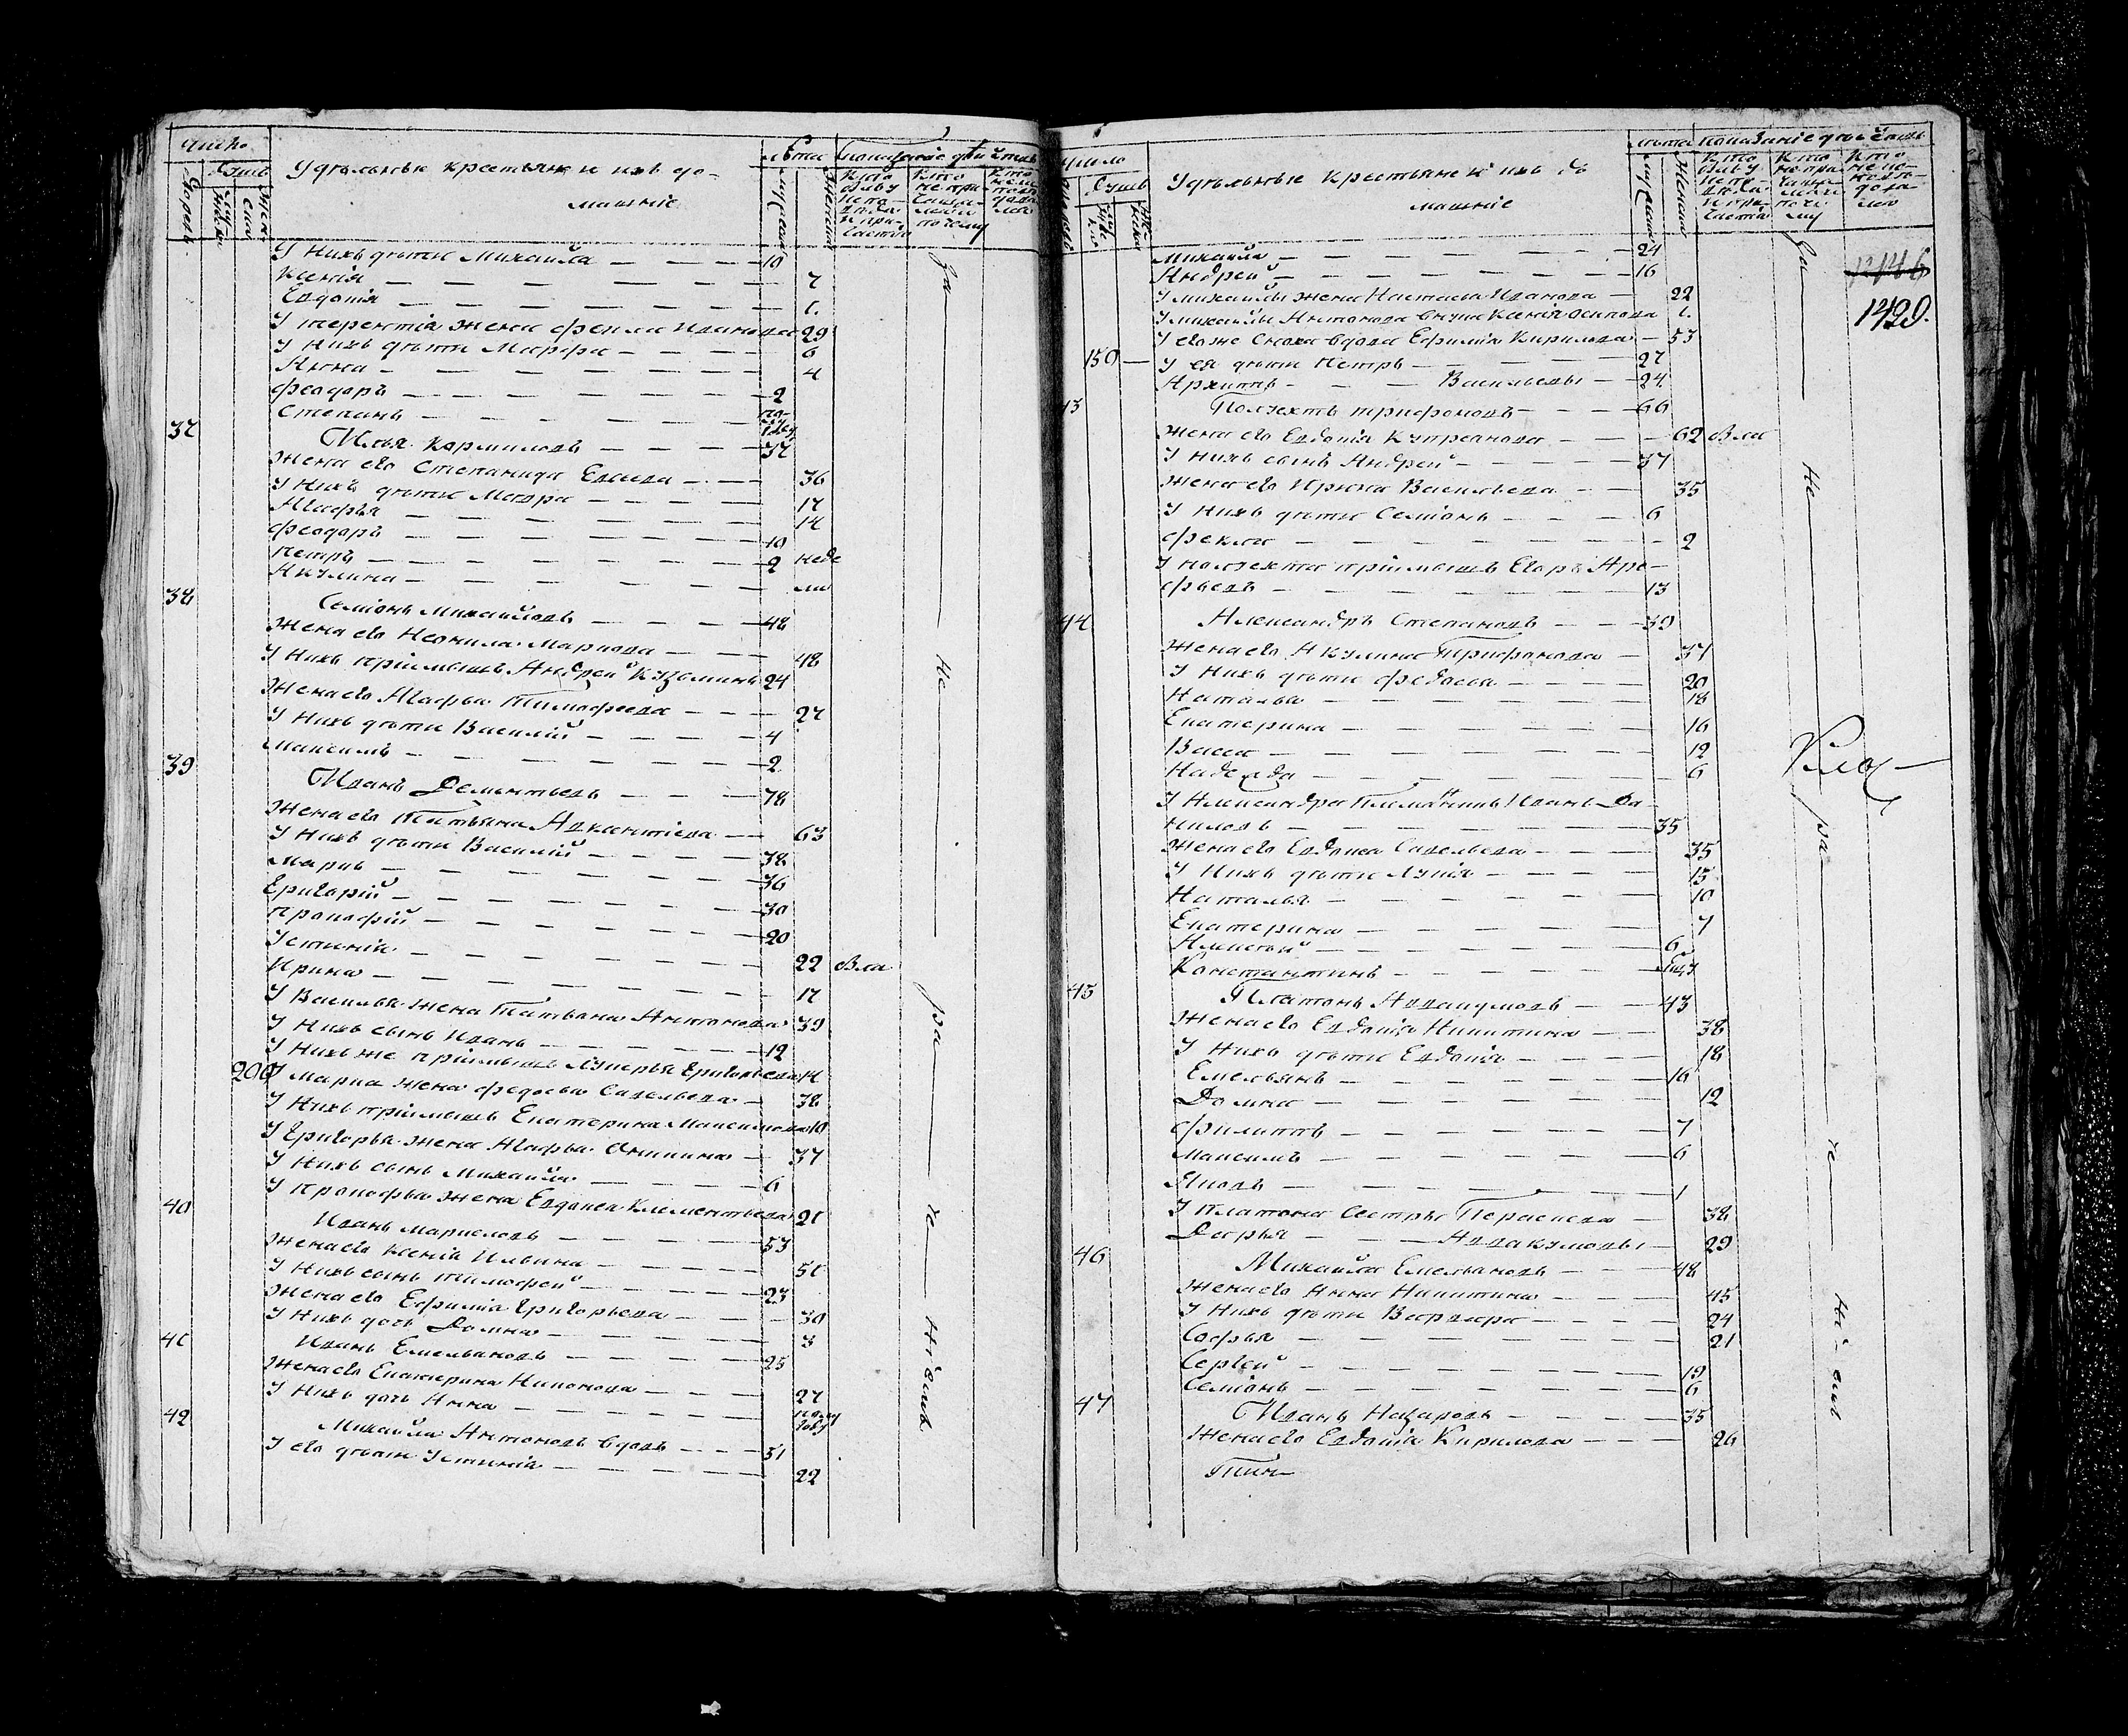 Число
Дворовъ
Душъ
Мужескъ
Женскъ
Удѣльныя крестьяне и ихъ до-
машніе
Лѣта
мужескъ
женскъ
показаніе дѣйства
Кто былъ у исповѣди и причастія
Кто исповѣдался
У нихъ дѣти Михайла — 10
Ксенія — 7
Евдокія — 1.
У терентія жена феклa Иванова 29
У нихъ дѣти Марфа — 6
Анна — 4
феодоръ — 2
Степанъ — полугоду
37 Илья Кормиловъ — 37
Жена его Степанида Евсеева — 36
У нихъ дѣти Мавра — 17
Агафья — 14
феодоръ — 10
петръ — 2
Акулина — недели
38 Семіонъ Михайловъ — 48
Жена его Неонила Маркова — 48
У нихъ пріимышъ Андрей Кузьминъ 24
Жена его Агафья Тимофеева — 27
У нихъ дѣти Василій — 4
Максимъ — 2
39 Иванъ Дементьевъ — 78
Жена его Татьяна Авксентіева — 63
У нихъ дѣти Василій — 38
Маркъ — 36
Григорій — 30
Прокофій — 20
Устинія — 22 бла
Ирина — 17
У Василья жена Татьяна Антонова 39
У нихъ сынъ Иванъ — 12
У нихъ же пріимышъ Лукерья Григорьева 14
200 У Марка жена федосья Савельева — 38
У нихъ пріимышъ Екатерина Максимова 10
У Григорья жена Агафья Осипина — 37
У нихъ сынъ Михайла — 6
У Прокофья жена Евдокея Клементьева 21
40 Иванъ Маркеловъ — 53
Жена его Ксенія Ильина — 51
У нихъ сынъ тимофей — 23
Жена его Ефимія Григорьева — 30
У нихъ дочь Домна — 3
41 Иванъ Емельяновъ — 25
Жена его Екатерина Никонова — 27
У нихъ дочь Анна — полугоду
42 Михайла Антоновъ вдовъ — 51
У его дѣти Устинія — 22
За — не — ра — че — ніемъ
число
Душъ
Удѣльныя Крестьяне и ихъ до
машніе
лѣта
показаніе дѣйства
1429.
Михайла — 24
Андрей — 16
У михайлы жена Настасья Иванова — 22
У михайлы Антонова внука Ксенія осипова 1.
У его же сноха вдова Ефимія Кирилова — 53
150 — У ея дѣти Петръ — 27
Архипъ — Васильевы — 24
43 Полуехтъ трифоновъ — 66
Жена его Евдокія Купреянова — 62 бла
У нихъ сынъ Андрей — 37
Жена его Ирина Васильева — 35
У нихъ дѣти Семіонъ — 6
фекла — 2
У полуехта пріимышъ Егоръ Аре-
фьевъ — 13
44 Александръ Степановъ — 39
Жена его Акулина Трифонова — 37
У нихъ дѣти федосья — 20
Наталья — 18
Екатерина — 16
Васса — 12
Надежда — 6
У Александра племянникъ Иванъ Да-
ниловъ — 35
Жена его Евдокея Савельева — 35
У нихъ дѣти Лукія — 15
Наталья — 10
Екатерина — 7
Алексей — 6
Константинъ —
45 Платонъ Аввакумовъ — 43
Жена его Евдокія Никитина — 38
У нихъ дѣти Евдокія — 18
Емельянъ — 16
Домна — 12
филиппъ — 7
Максимъ — 6
Яковъ — 1
У платона сестры Парасковья — 38
Дарья — Аввакумовы — 29
46 Михайла Емельяновъ — 48
Жена его Анна Никитина — 45
У нихъ дѣти Варвара — 24
Софья — 21
Сергей — 19
Семіонъ — 6
47 Иванъ Назаровъ — 35
Жена его Евдокія Кирилова — 26
За — не — ра — че — ні — емъ